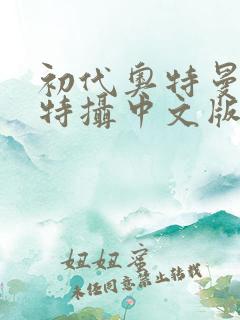 初代奥特曼
特攝中文版
妞妞蜜
未经同意禁止转载